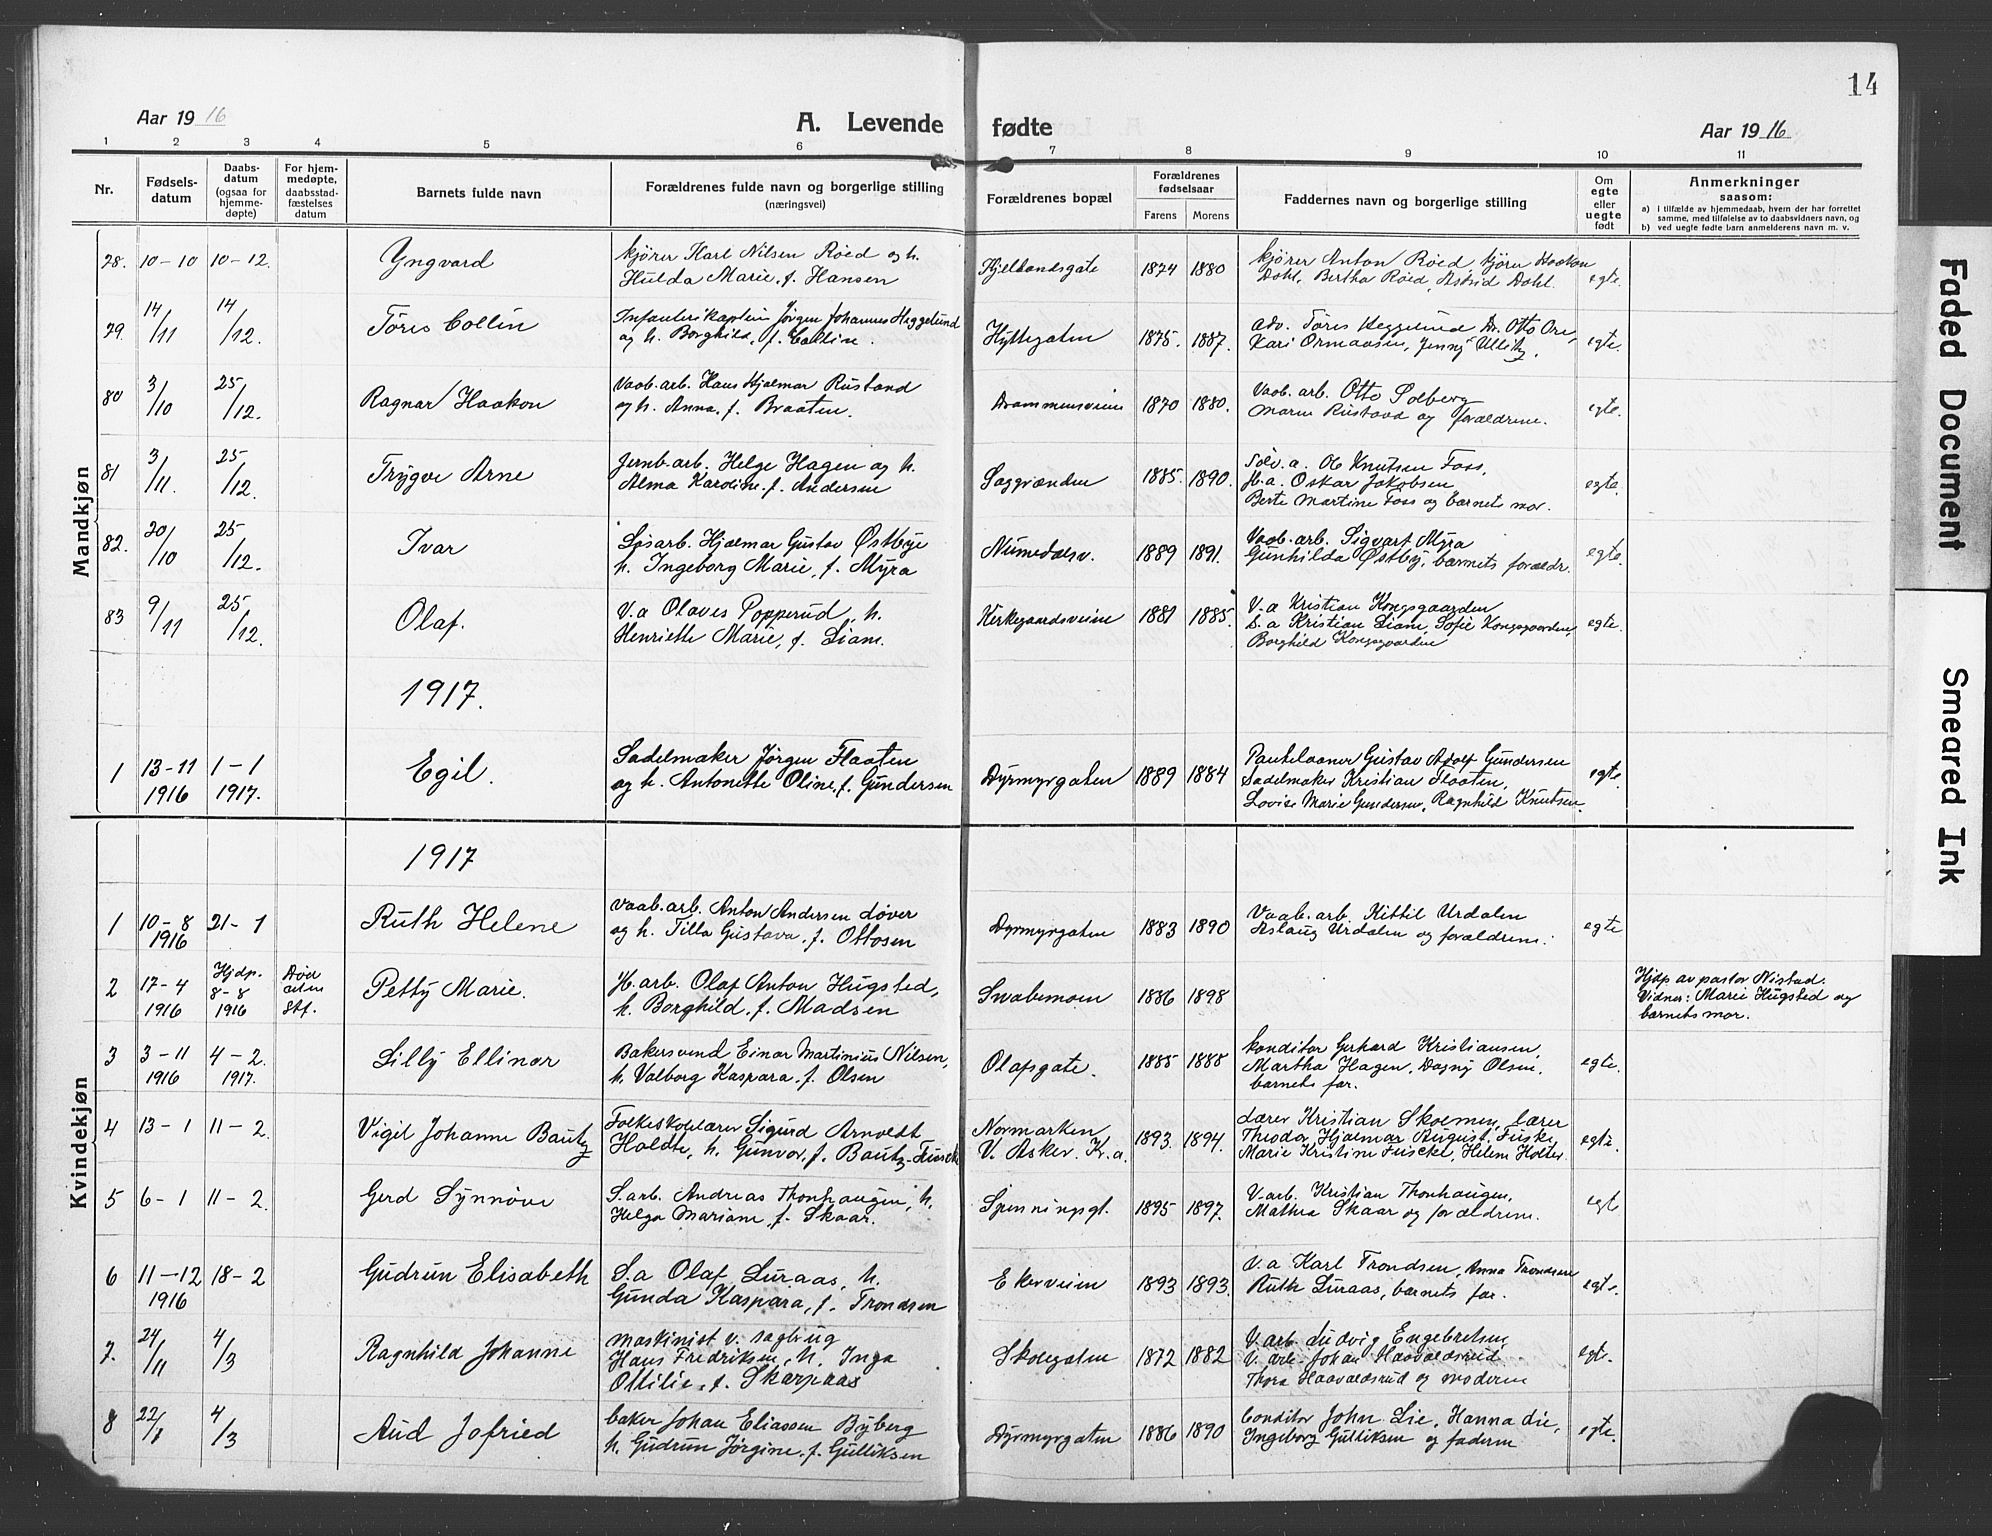 14
Aar 19 16
A. Levende fødte
Aar 19 16
1 2 3 4 5 6 7 8 9 10 11
Nr.
Fødsels-
datum
Daabs-
datum
(ogsaa for
hjemme-
døpte)
For hjem-
medøpte,
daabsstad-
fæstelses
datum
Barnets fulde navn
Forældrenes fulde navn og borgerlige stilling
(næringsvei)
Forældrenes bopæl
Forældrenes
fødselsaar
Farens Morens
Faddernes navn og borgerlige stilling
Om
egte
eller
uegte
født
Anmerkninger
saasom:
a) i tilfælde av hjemmedaab, hvem der har forrettet
samme, med tilføielse av to daabsvidners navn, og
b) ved uegte fødte barn anmelderens navn m. v.
Mandkjøn
78. 10-10 10-12. Yngvard
kjører Karl Nilsen Røed og h.
Hulda Marie, f. Hansen
1874 1880
kjører Anton Røed, kjører Haakon
Dahl, Bertha Røed, Astrid Dahl.
egte.
79. 14/11 14/12. Tøres Collin
Infanterikaptein Jørgen Johannes Heggelund
og h. Borghild, f. Colline.
Hyttegaten 1875. 1887.
adv. Tøres Heggelund Dr. Otto Ore,
Kari Ormaasen, Jenny Ullitz.
egte.
80 3/10 25/12. Ragnar Haakon
Vaab. arb. Hans Hjalmar Rustand
og h. Anna, f. Braaten.
Drammensveien 1870 1880.
Vaab. arb. Otto Solberg
Maren Rustand og forældrene.
egte.
81 3/11. 25/12. Trygve Arne
Jernb. arb. Helge Hagen og h.
Alma Karoline, f. Andersen
Saggrænden 1885. 1890.
Sølv. a. Ole Knutsen Foss,
H. a. Oskar Jakobsen
Berte Martine Foss og barnets mor.
egte.
82. 20/10 25/12. Ivar
Løsarb. Hjalmar Gustav Østbye
h. Ingeborg Marie, f. Myra
Numedalsv. 1889 1891.
Vaab. arb. Sigvart Myra
Gunhilda Østby, barnets forældr.
egte.
83 9/11 25/12. Olaf.
V. a Olaves Popperud, h.
Henriette Marie, f. Liam.
Kirkegaardsveien 1881 1885.
V. a Kristian Kongsgaarden
S. a Kristian Liam, Sofie Kongsgaarden,
Borghild Kongsgaarden
egte.
1917.
1 13-11 1916 1-1 1917. Egil.
Sadelmaker Jørgen Flaaten
og h. Antonette Oline, f. Gundersen
Dyrmyrgaten 1889 1884
Pantelaaner Gustav Adolf Gundersen
Sadelmaker Kristian Flaaten,
Lovise Marie Gundersen, Ragnhild Knutsen.
egte.
Kvindekjøn
1917
1 10-8 1916 21-1 Ruth Helene
Vaab. arb. Anton Andersen døver
og h. Tilla Gustava, f. Ottosen
Dyrmyrgaten 1883 1890
Vaab. arb. Kittil Urdalen
Aslaug Urdalen og forældrene.
egte
2 17-4 1916 Hjdp. 8-8 1916 Død uten Stf. Petty Marie.
H. arb. Olaf Anton Hugsted,
h. Borghild, f. Madsen
Svabemoen 1886 1898
Hjdp av pastor Nistad.
Vidner: Marie Hugsted og
barnets mor.
3 3-11 1916 4-2. 1917. Lilly Ellinor
Bakersvend Einar Martinius Nilsen,
h. Valborg Kaspara, f. Olsen
Olafsgate. 1885 1888
Konditor Gerhard Kristiansen,
Martha Hagen, Dagny Olsen,
barnets far.
egte.
4 13-1 11-2. Vigil Johanne Bautz
Folkeskolelærer Sigurd Arnoldt
Holdte, h. Gunvor, f. Bautz-
Normarken
V. Asker. Kr.a. 1893. 1894.
Lærer Kristian Skoemen, lærer
Theodor Hjalmar August
Marie Kristine Helene Holter
egte.
5 6-1 11-2. Gerd Synnøve
S. arb. Andreas Thonhaugen, h.
Helga Mariane, f. Skaar.
Spenningsgt. 1895 1897.
V. arb. Kristian Thonhaugen,
Mathea Skaar og forældrene.
egte
6 11-12 1916 18-2 Gudrun Elisabeth
S. a Olaf Luraas, h.
Gunda Kaspara, f. Trondsen
Ekerveien 1893 1893.
V. a Karl Trondsen, Anna Trondsen
Ruth Luraas, barnets far.
egte.
7. 24/11 4/3 Ragnhild Johanne
Maskinist v. sagbrug
Hans Fredriksen, h. Inga
Ottilie, f. Skarpaas
Skolegaten 1872 1882
V. arb. Ludvig Engebretsen
V. arb. Johan Haavaldsrud
Thora Haavaldsrud og moderen
egte.
8 22/1 4/3 Aud Jofried
baker Johan Eliassen Byberg
h. Gudrun Jørgine, f. Gulliksen
Dyrmyrgaten 1886 1890
Conditor John Lie, Hanna Lie,
Ingeborg Gulliksen og faderen
egte.
Faded Document
Smeared Ink